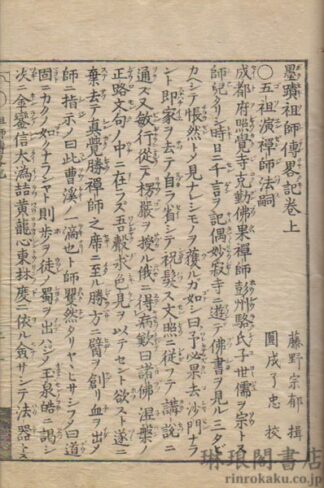 墨蹟祖師傳畧記卷上
藤野宗郁 揖
圓成了忠 校
○五祖演禪師法嗣
成都府照覺寺克勤佛果禪師彭州駱氏子世儒ヲ宗トス
師記クリン時日ニ千言ヲ記偶妙寂寺ニ遊テ佛書ヲ見ル三タヒ
カヘシテ悵然トメ舊ナレシモノヲ獲ルカ如シ曰予必是去沙門ナラ
ント即家ヲ去テ自省ニシテ祝髮ス文照ニ從テ講説ニ
通ス又敏行從テ楞嚴ヲ授ル俄ニ得病歎曰諸佛涅槃ノ
正路文句ノ中ニ在ラス吾聲求色見ヲ以テセント欲ス遂ニ
棄去テ眞覺勝禪師之席ニ至ル勝方ニ臂ヲ創リ血ヲ出メ
師ニ指示ノ曰此曹溪ノ一滴也ト師矍然タリヤヽ久シフノ曰道
固ニカクノ如クナランヤト則歩ヲ徒メ蜀ヲ出ハシメ玉泉皓ニ謁シ
次ニ金鑾信大潙喆黄龍心東林度ニ依ル僉サシテ法器トス
琳琅閣書店
rinrokaku.co.jp